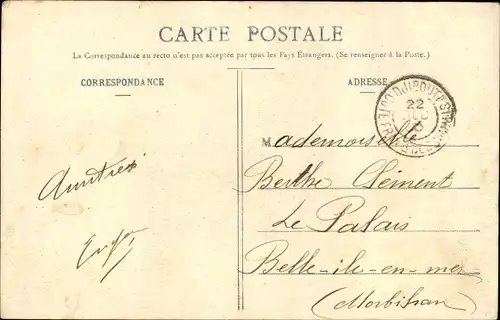 CARTE POSTALE
La Correspondance au recto n'est pas acceptée par tous les Pays Étrangers. (Se renseigner à la Poste.)
CORRESPONDANCE
ADRESSE
DJIBOUTI
22
Mademoiselle
Berthe Clément
Le Palais
Belle-ile-en-mer
(Morbihan)